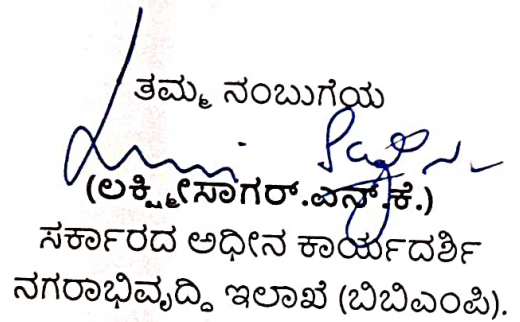 ತಮ್ಮ ನಂಬುಗೆಯ
(ಲಕ್ಷ್ಮೀಸಾಗರ್.ಎನ್.ಕೆ.)
ಸರ್ಕಾರದ ಅಧೀನ ಕಾರ್ಯದರ್ಶಿ
ನಗರಾಭಿವೃದ್ಧಿ ಇಲಾಖೆ (ಬಿಬಿಎಂಪಿ).